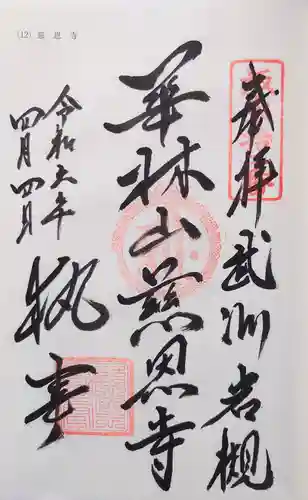 (12) 慈恩寺
奉拝 武州岩槻
華林山慈恩寺
令和五年
四月四日
執事